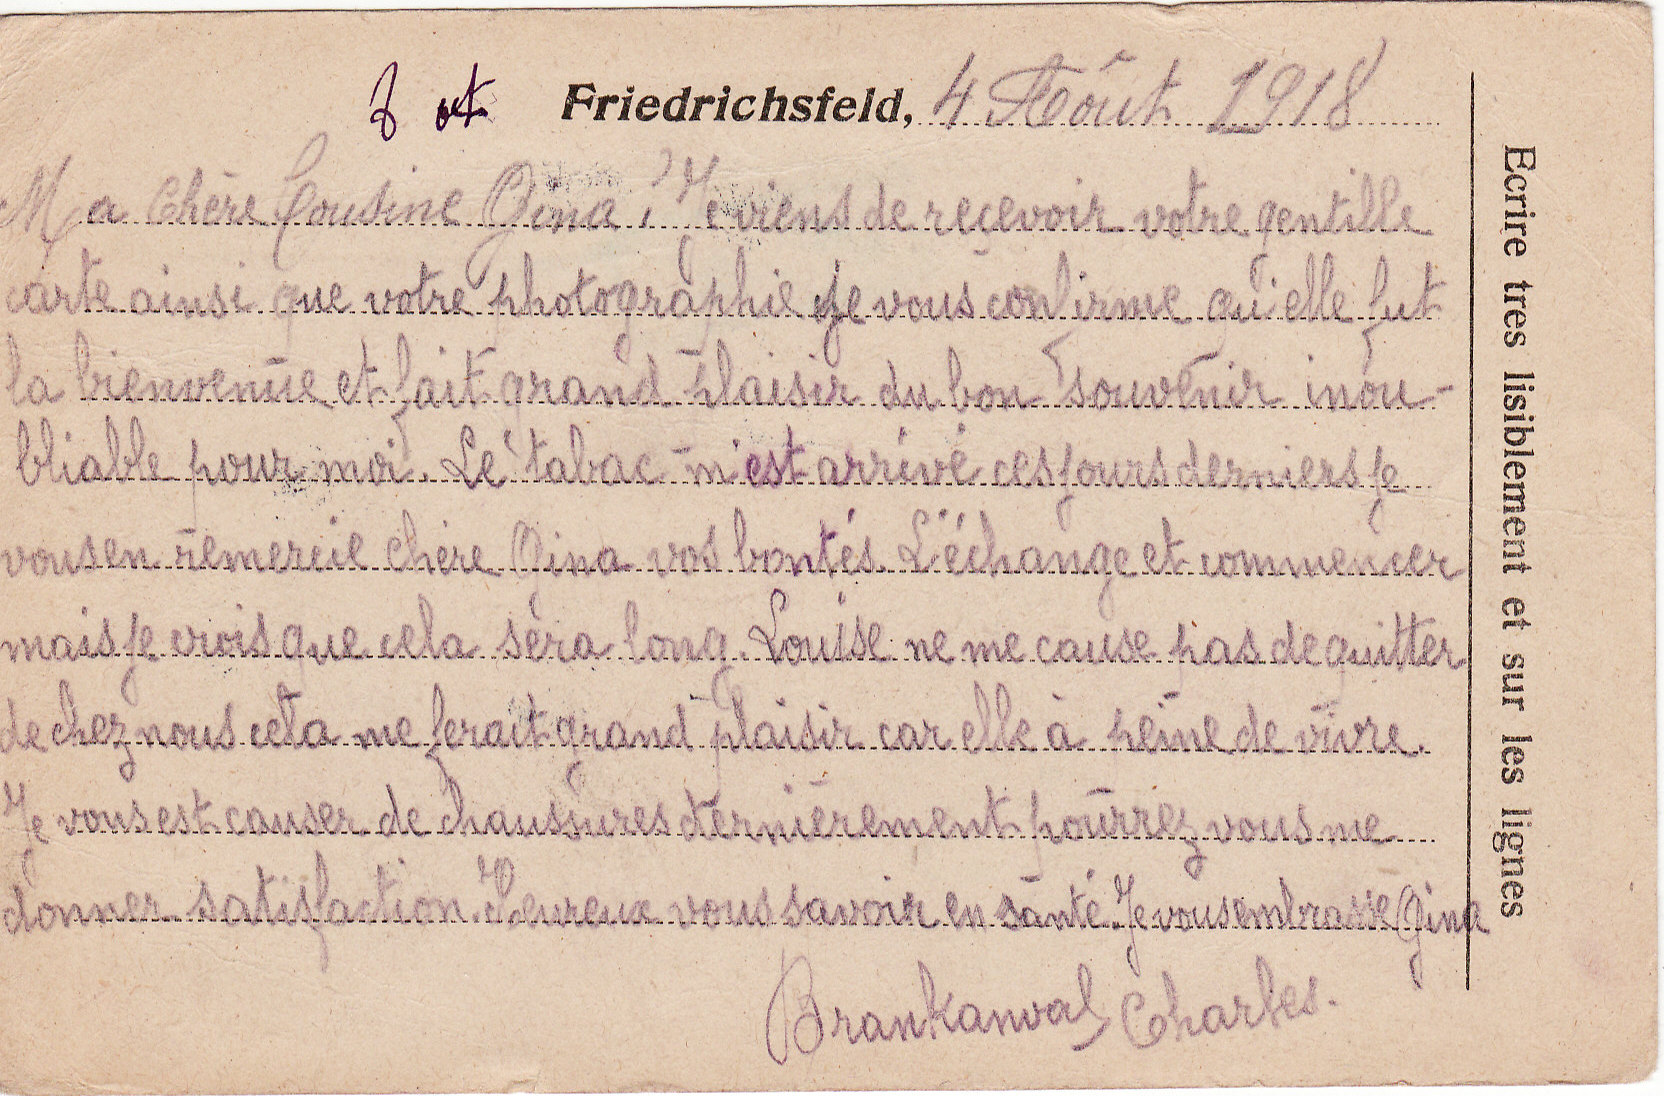 8 oct Friedrichsfeld, 4 Août 1918
Ma Chère Cousine Gina, Je viens de reçevoir votre gentille
carte ainsi que votre photographie Je vous confirme qu'elle fut
la bienvenue et fait grand plaisir du bon souvenir inou-
bliable pour moi. Le tabac m'est arrivé ces jours derniers je
vous en remercie chère Gina vos bontés. L'échange et commencer
mais je crois que cela séra long. Louise ne me cause pas de quitter
de chez nous cela me ferait grand plaisir car elle à peine de vivre.
Je vous est causer de chaussures dernièrement pourrez vous me
donner satisfaction. Heureux vous savoir en santé. Je vous embrasse Gina
Brankanval Charles.
Ecrire tres lisiblement et sur les lignes